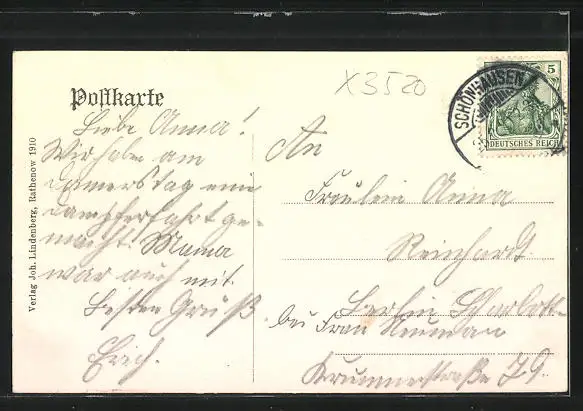 Postkarte
X3520
SCHÖNHAUSEN
5
DEUTSCHES REICH
Verlag Joh. Lindenberg, Rathenow 1910
Liebe Anna!
Wir haben am
Donnerstag eine
Dampferfahrt ge-
macht. Mama
war auch mit.
Besten Gruß
Erich.
An
Fräulein Anna
Reinhardt
Berlin Charlott-
bei Frau Neuman
Krummestraße 79.